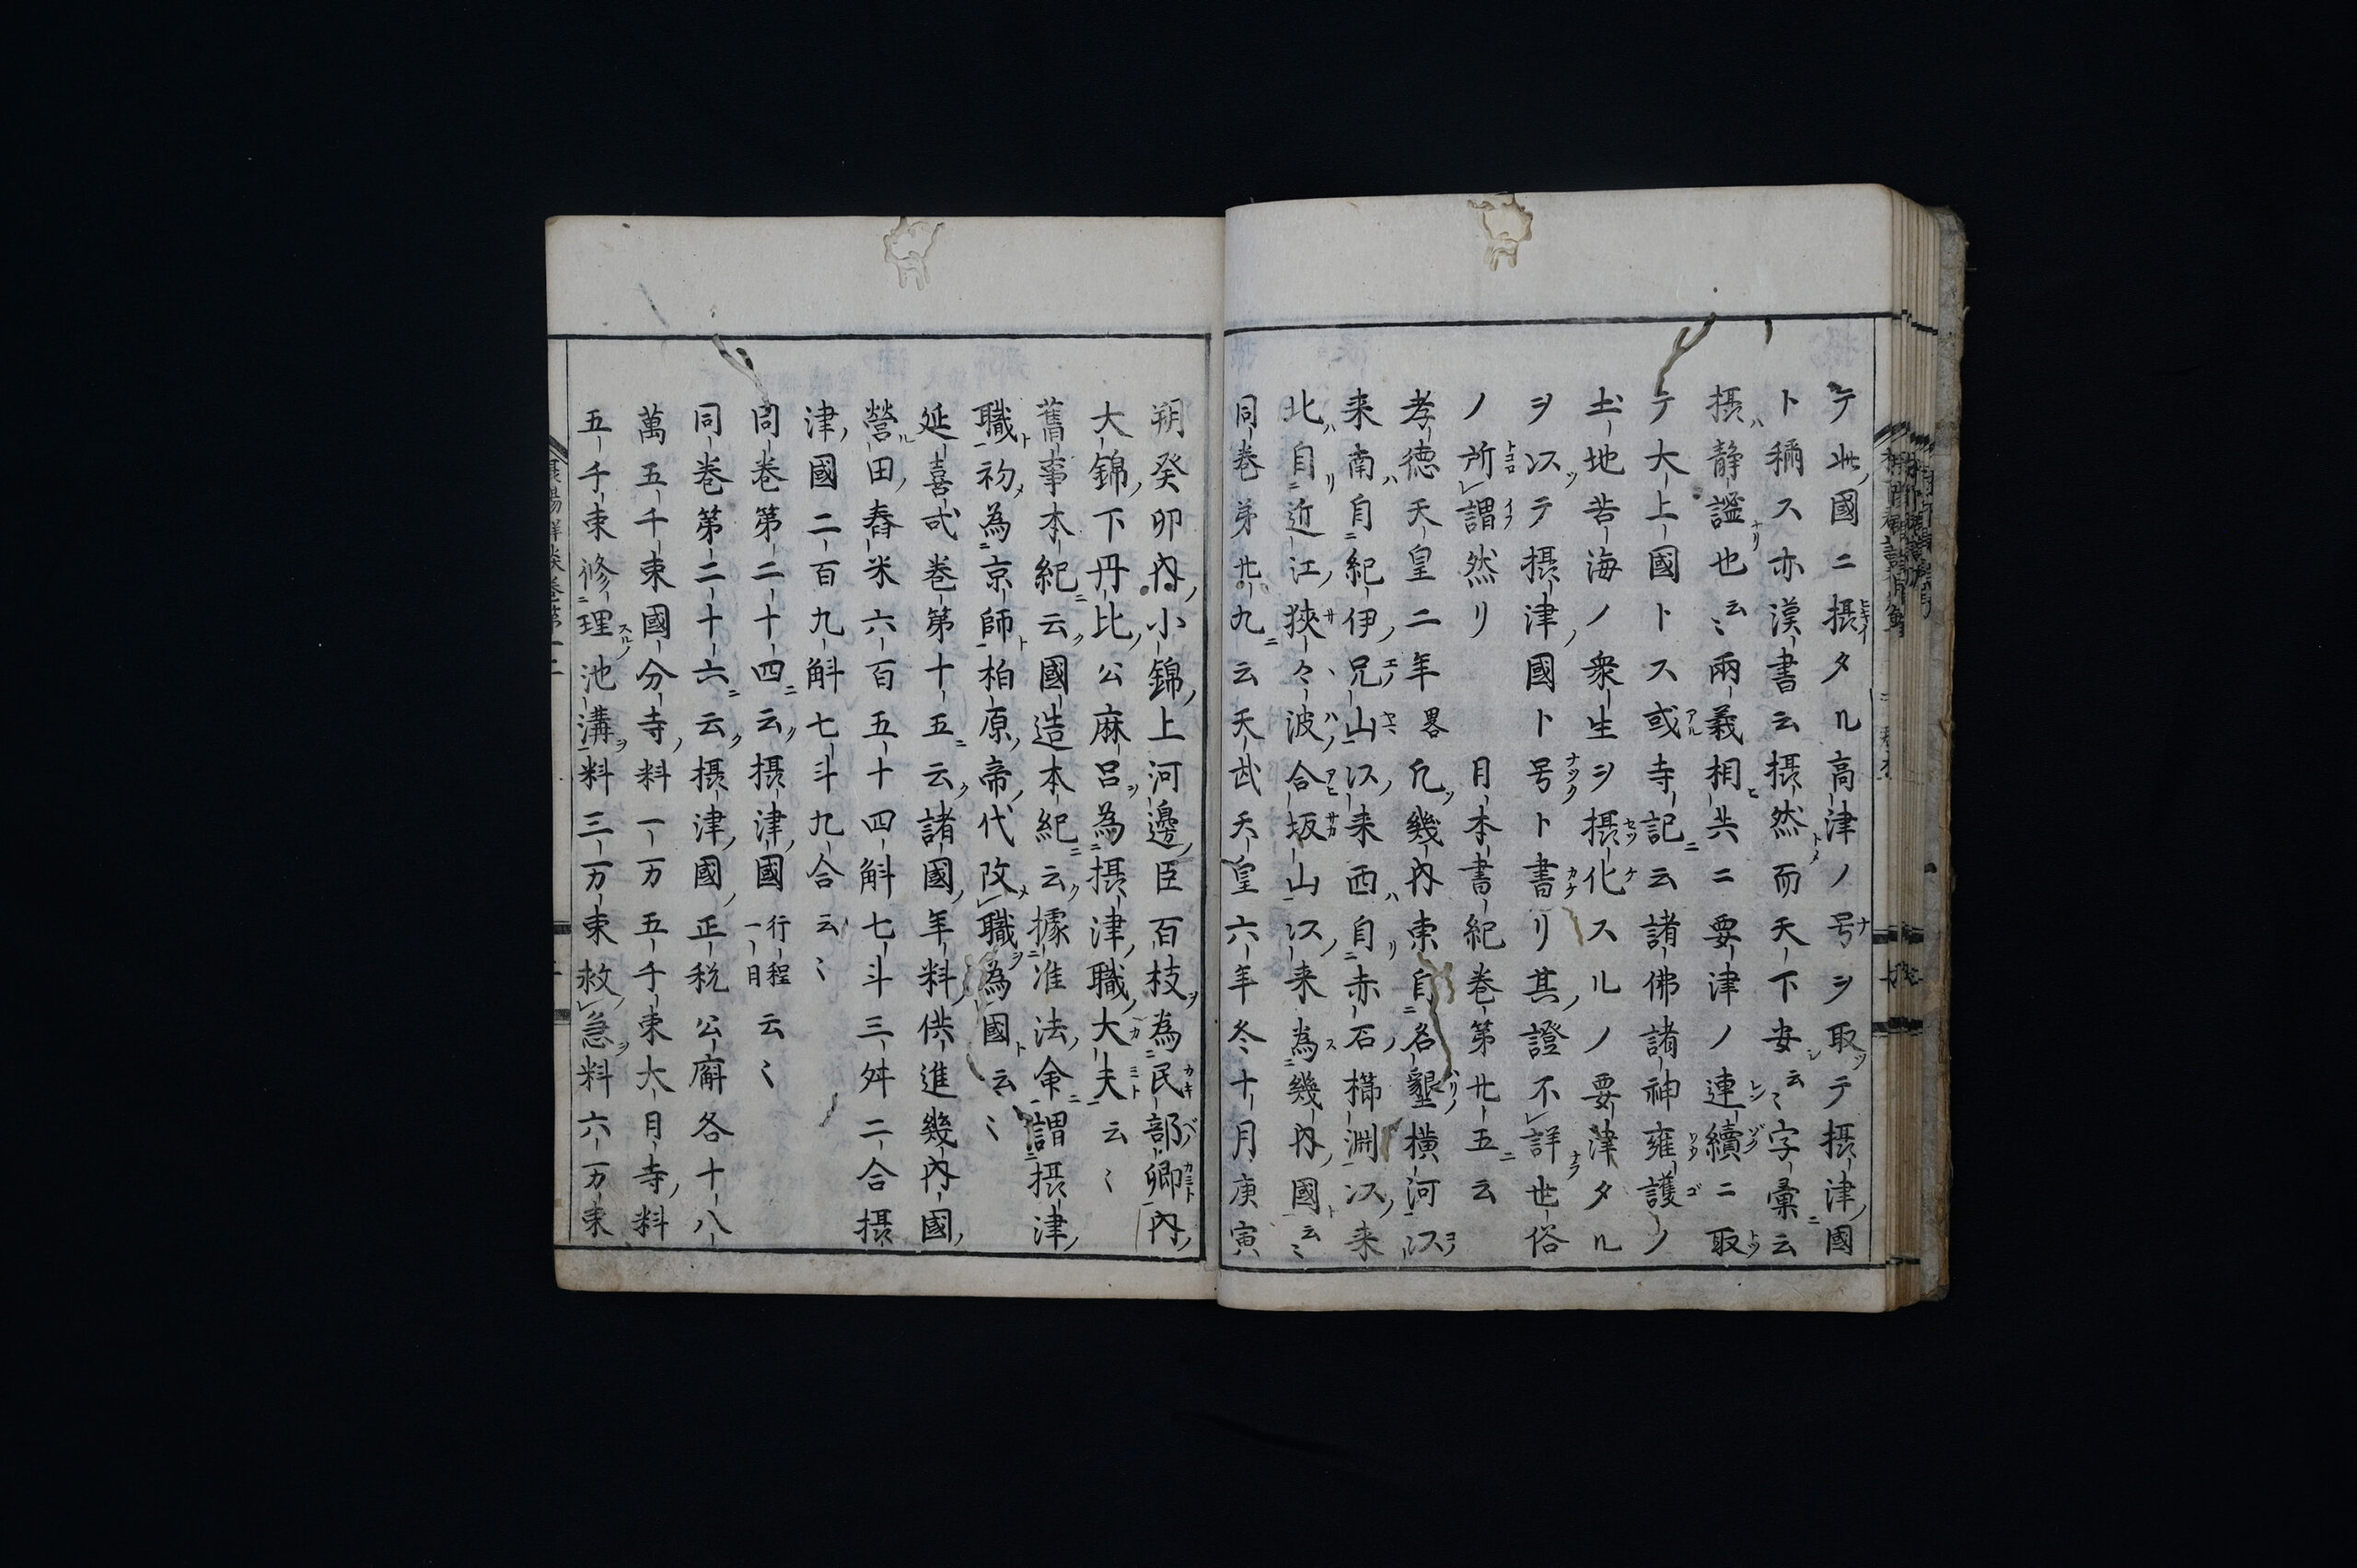 テ此國ニ摂タル高津ノ号ヲ取テ摂津國
ト稱ス亦漢書云摂然而天下安云〻字彙云
摂静謐也云〻兩義相共ニ要津ノ連續ニ取
テ大上國トス或寺記云諸佛諸神雍護ノ
土地苦海ノ衆生ヲ摂化スルノ要津タル
ヲ以テ摂津國ト号ト書リ其證不詳世俗
ノ所謂然リ
日本書紀巻第廿五云
孝徳天皇二年畧凢畿内東自名墾横河以
来南自紀伊兄山以来西自赤石櫛淵以来
北自近江狹々波合坂山以来為畿内國云〻
同巻第廿九云天武天皇六年冬十月庚寅
朔癸卯内小錦上河邊臣百枝為民部卿内
大錦下丹比公麻呂為摂津職大夫云〻
舊事本紀云國造本紀云據准法令謂摂津
職初為京師柏原帝代改職為國云〻
延喜式巻第十五云諸國年料供進畿内國
營田舂米六百五十四斛七斗三舛二合摂
津國二百九斛七斗九合云〻
同巻第二十四云摂津國行程一日云〻
同巻第二十六云摂津國正税公廨各十八
萬五千束國分寺料一万五千束大月寺料
五千束修理池溝料三万束救急料六万束